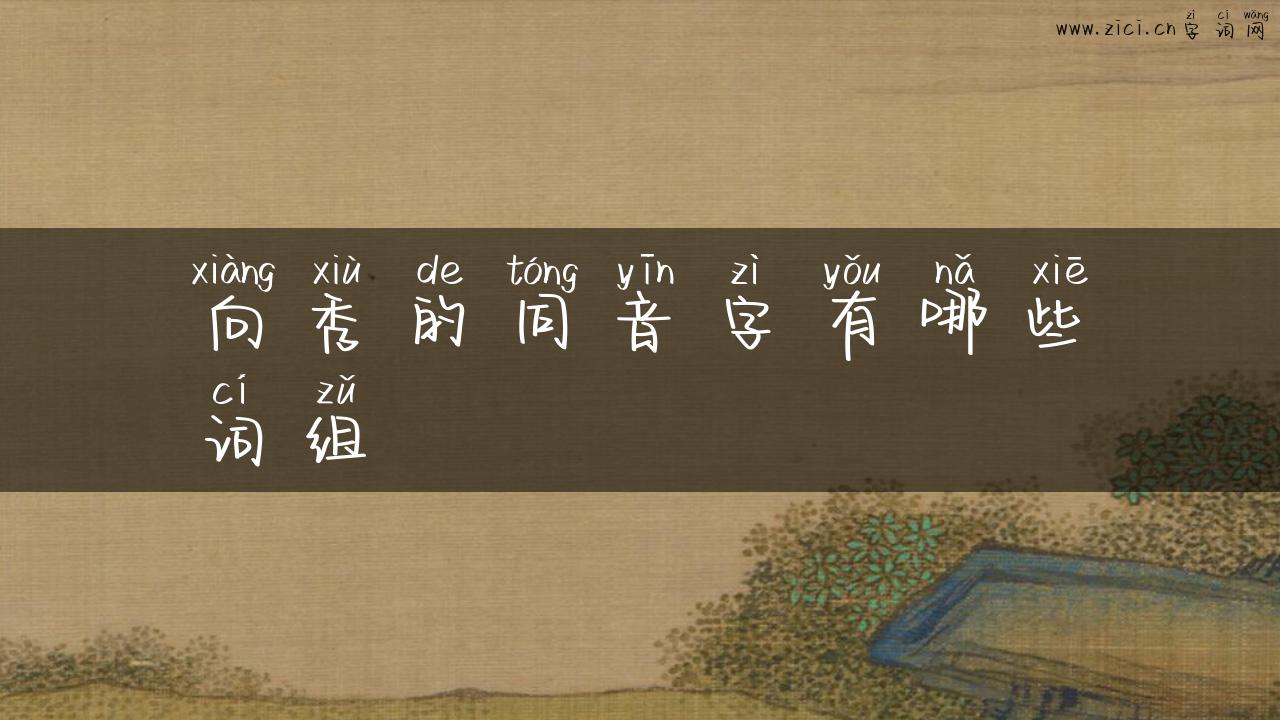 zì cí wǎng
www.zici.cn 字词网
xiàng xiù de tóng yīn zì yǒu nǎ xiē
向秀的同音字有哪些
cí zǔ
词组